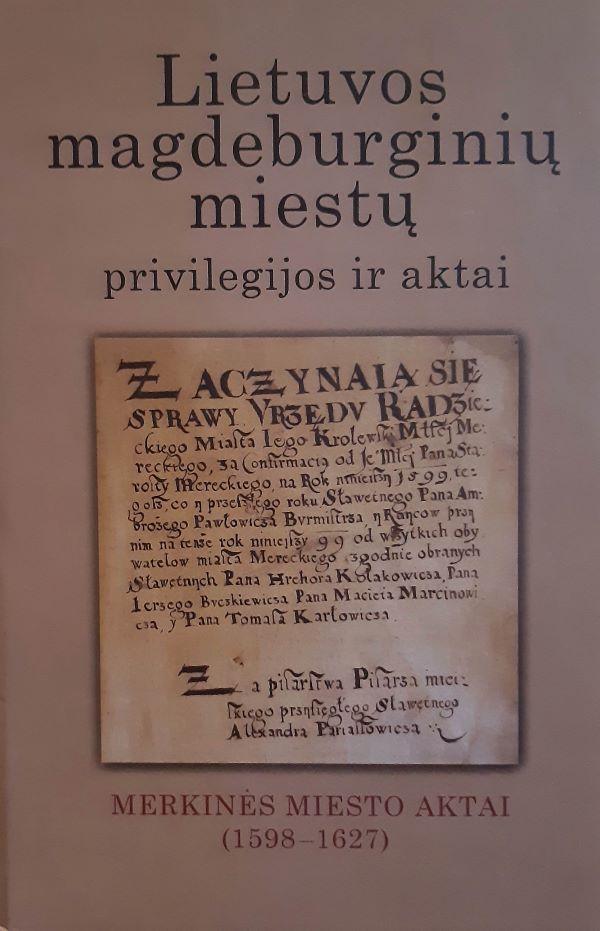 Lietuvos
magdeburginių
miestų
privilegijos ir aktai
ZACZYNAIĄ SIĘ
SPRAWY VRZĘDV RADZie:
ckiego Miasta Iego Krolewski Młſej Me
reckiego, za Confirmacią od Je Młej Pana Sta
roſty Mereckiego, na Rok ninieiſzy 1599, te:
goſz, co y przeſzłego roku Sławetnego Pana Am:
brożego Pawłowicza Bvrmiſtrza, y Rayców przy
nim na tenże rok ninieiſzy 99 od wſzytkich oby
watelow miaſta Mereckiego zgodnie obranych
Sławętnych Pana Hrehora Kołakowicza, Pana
Ierzego Bvczkiewicza Pana Macieia Marcinowi
cza, y Pana Tomaſza Karłowicza.
Za piſarſtwa Piſarza miei:
ſkiego przyſięgłego Sławętnego
Alexandra Pariaſſowicza
MERKINĖS MIESTO AKTAI
(1598–1627)